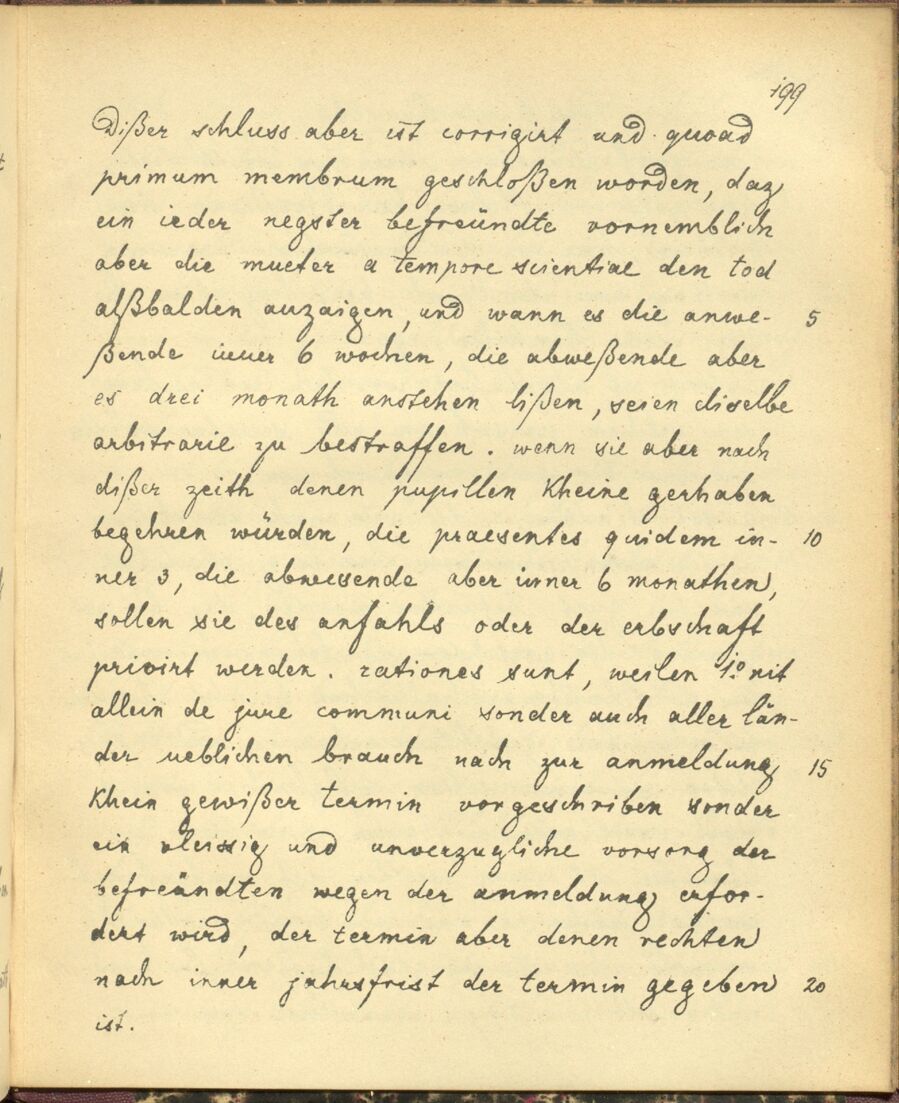 199
Dißer schluss aber ist corrigirt und quoad
primum membrum geschloßen worden, daz
ein ieder negster befreündte vornemblich
aber die mueter a tempore scientiae den tod
alßbalden anzaigen, und wann es die anwe- 5
ßende inner 6 wochen, die abweßende aber
es drei monath anstehen lißen, seien diselbe
arbitrarie zu bestraffen. wenn sie aber nach
dißer zeith denen pupillen kheine gerhaben
begehren würden, die praesentes quidem in- 10
ner 3, die abwesende aber inner 6 monathen,
sollen sie des anfahls oder der erbschaft
privirt werden. rationes sunt, weilen 1.o nit
allein de jure communi sonder auch aller län-
der ueblichen brauch nach zur anmeldung 15
khein gewißer termin vorgeschriben sonder
ein vleissig und unverzugliche vorsorg der
befreündten wegen der anmeldung erfor-
dert wird, der termin aber denen rechten
nach inner jahrsfrist der termin gegeben 20
ist.